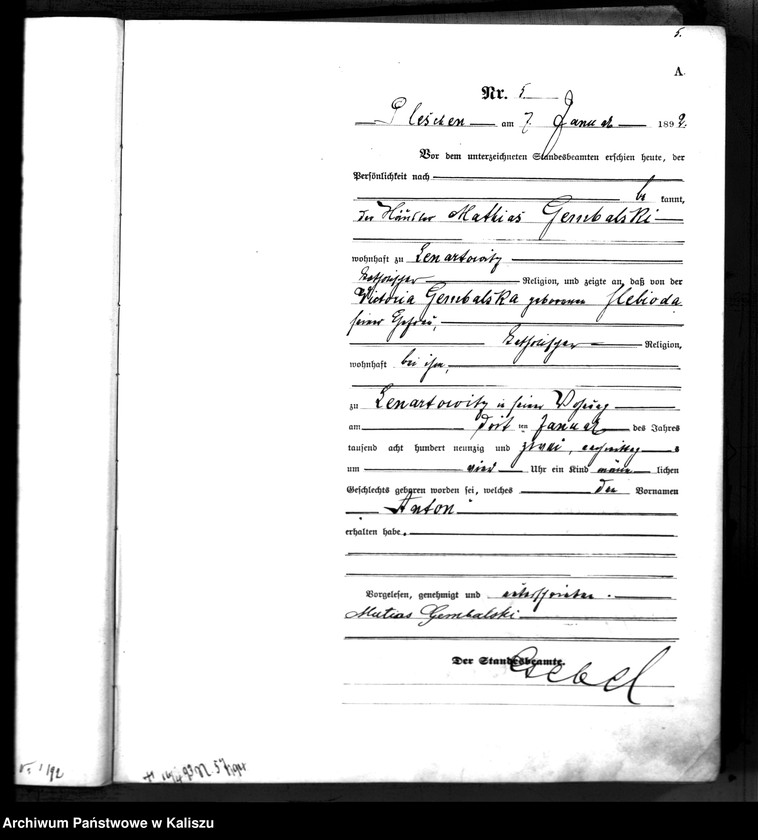 5.
A.
Nr. 5.
Pleschen am 7. Januar 1892.
Vor dem unterzeichneten Standesbeamten erschien heute, der
Persönlichkeit nach
be kannt,
der Händler Mathias Gembalski
wohnhaft zu Lenartowitz
katholischer Religion, und zeigte an, daß von der
Victoria Gembalska geborenen Slebioda
seiner Ehefrau,
katholischer Religion,
wohnhaft bei ihm,
zu Lenartowitz in seiner Wohnung
am ten Januar des Jahres
tausend acht hundert neunzig und zwei, nachmittags
um vier Uhr ein Kind männ lichen
Geschlechts geboren worden sei, welches den Vornamen
Anton
erhalten habe.
Vorgelesen, genehmigt und unterschrieben.
Matias Gembalski
Der Standesbeamte.
Archiwum Państwowe w Kaliszu